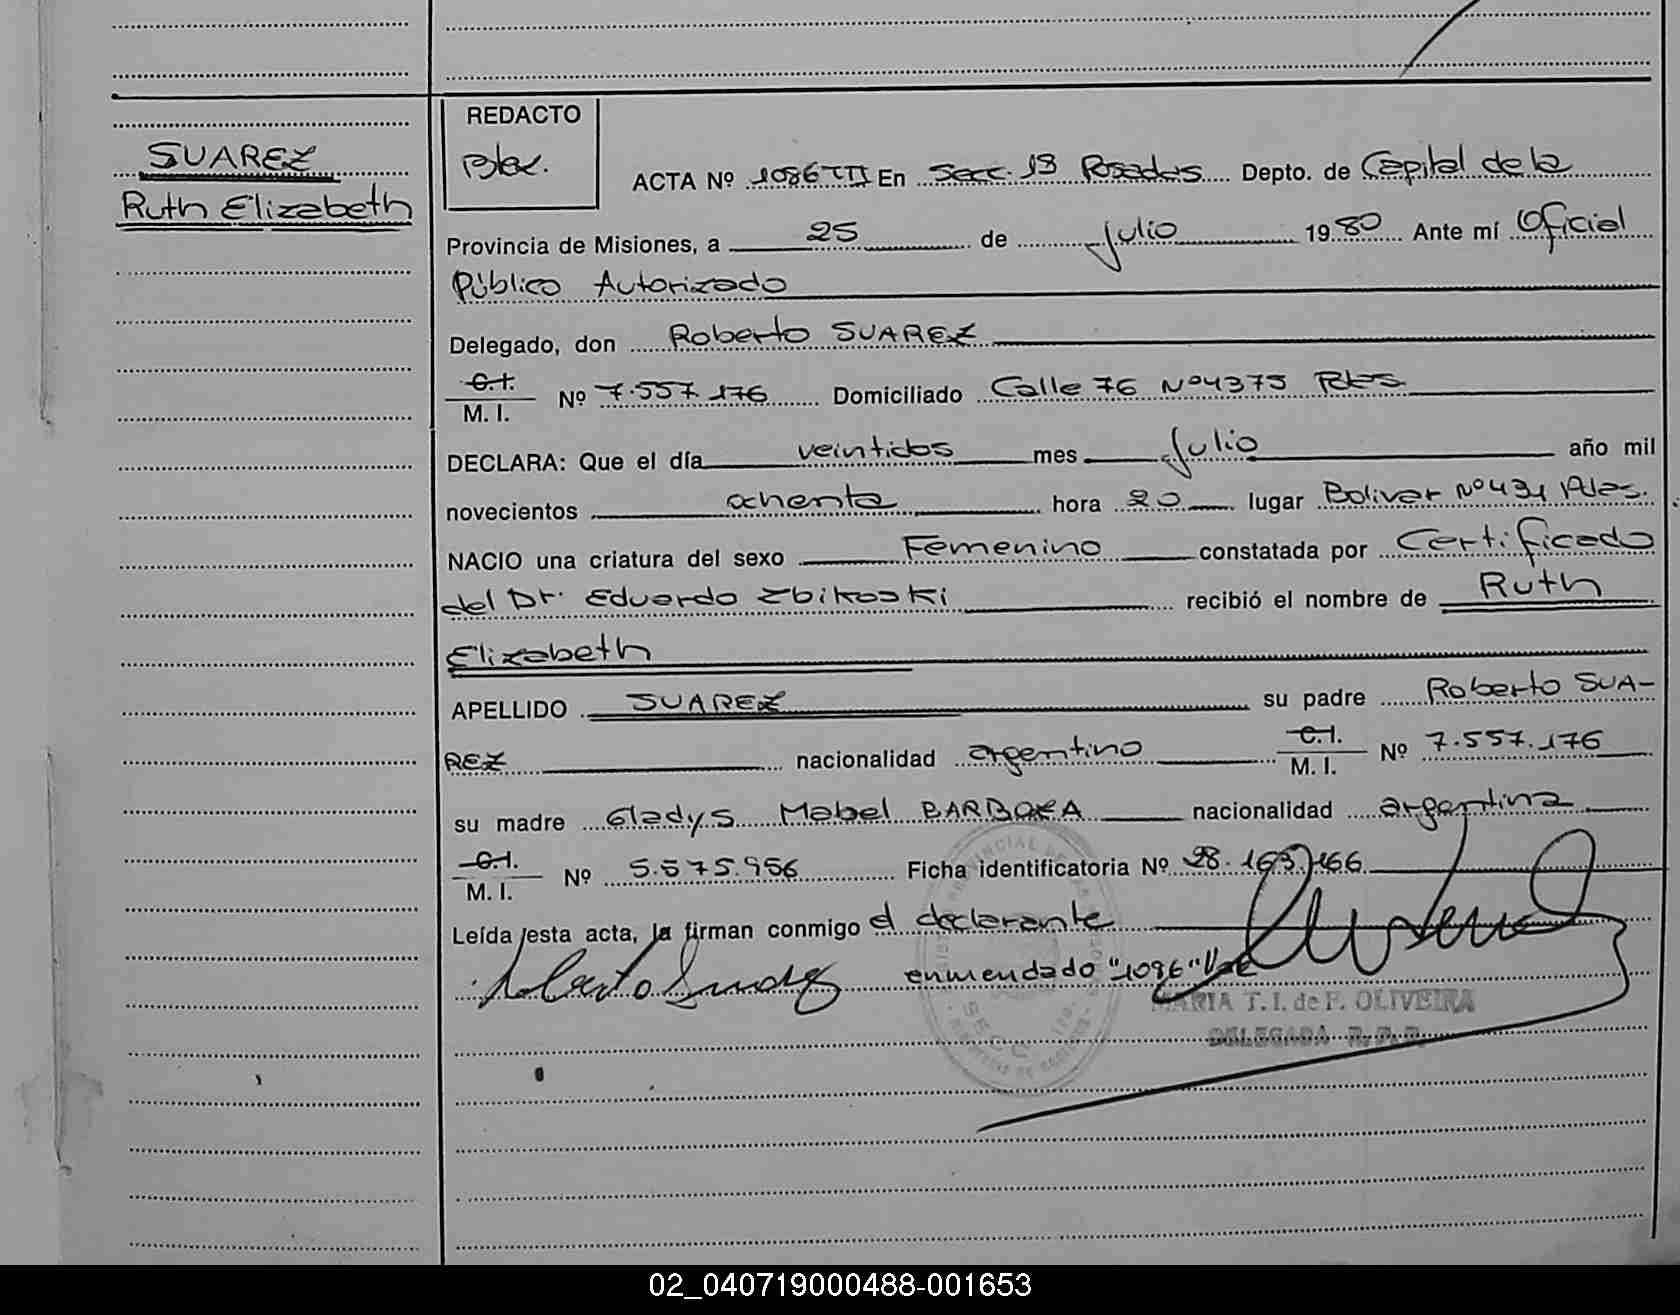 SUAREZ
Ruth Elizabeth
REDACTO
ACTA Nº 1086 TIII En Secc. 1ª Posadas Depto. de Capital de la
Provincia de Misiones, a 25 de julio 1980 Ante mí Oficial
Público Autorizado
Delegado, don Roberto SUAREZ
C.I. M. I. Nº 7.557.176 Domiciliado Calle 76 Nº 4375 Pdas.
DECLARA: Que el día veintidos mes julio año mil
novecientos ochenta hora 20 lugar Bolivar Nº 431 Pdas.
NACIO una criatura del sexo Femenino constatada por Certificado
del Dr. Eduardo Zbikoski recibió el nombre de Ruth
Elizabeth
APELLIDO SUAREZ su padre Roberto SUA-
REZ nacionalidad argentino C.I. M. I. Nº 7.557.176
su madre Gladys Mabel BARBOZA nacionalidad argentina
C.I. M. I. Nº 5.575.956 Ficha identificatoria Nº 28.163.166
Leída esta acta, la firman conmigo el declarante
enmendado "1086" Vale
MARIA T. I. de F. OLIVEIRA
DELEGADA R. P. P.
02_040719000488-001653